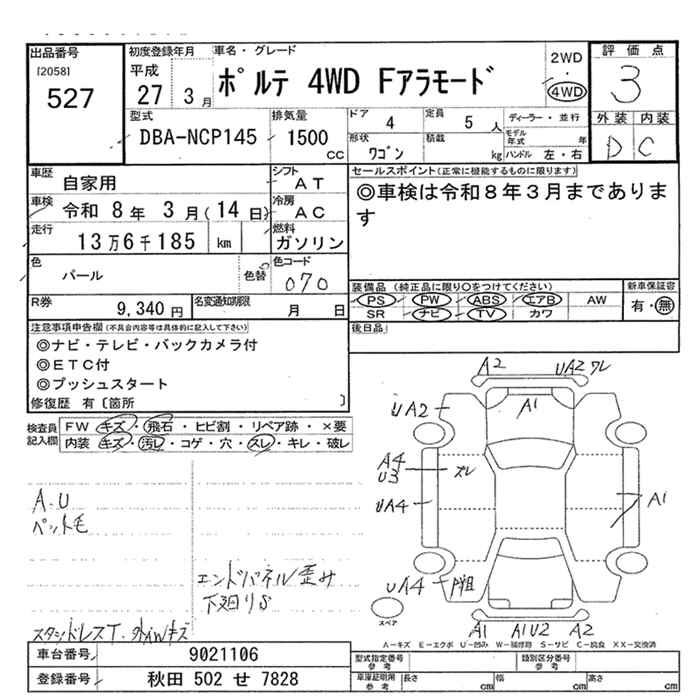 出品番号
[2058]
527
初度登録年月
平成
27 3月
車名・グレード
ポルテ 4WD Fアラモード
2WD
・
4WD
評価点
3
外装 内装
D C
型式
DBA-NCP145
排気量
1500
CC
ドア
4
定員
5人
形状
ワゴン
積載
kg
ディーラー・並行
モデル
年式 年
ハンドル 左・右
車歴
自家用
シフト
AT
車検
令和 8年 3月(14日)
冷房
AC
走行
13万6千185 km
燃料
ガソリン
色
パール
色替
色コード
070
R券
9,340円
名変通知期限
月 日
セールスポイント(正常に機能するものに限ります)
◎車検は令和8年3月まであります
す
装備品 (純正品に限り○をつけてください)
PS PW ABS エアB AW
SR ナビ TV カワ
新車保証書
有・無
後日品
注意事項申告欄(不具合内容等は具体的に記入して下さい)
◎ナビ・テレビ・バックカメラ付
◎ETC付
◎プッシュスタート
修復歴 有〔箇所 〕
検査員
記入欄
FW キズ・飛石・ヒビ割・リペア跡・×要
内装 キズ・汚レ・コゲ・穴・スレ・キレ・破レ
A.U
ペット毛
エンドパネル歪み
下廻りS
スタッドレスT.
キズ
A2
UA2 ワレ
UA2
A1
A4
U3
ズレ
UA4
A1
UA4
スペア
A1 A1U2 A2
A-キズ E-エクボ U-凹み W-補修跡 S-サビ C-腐食 XX-交換済
車台番号
9021106
登録番号
秋田 502 せ 7828
型式指定番号
参考
類別区分番号
参考
車庫証明用
参考
長さ
cm
幅
cm
高さ
cm